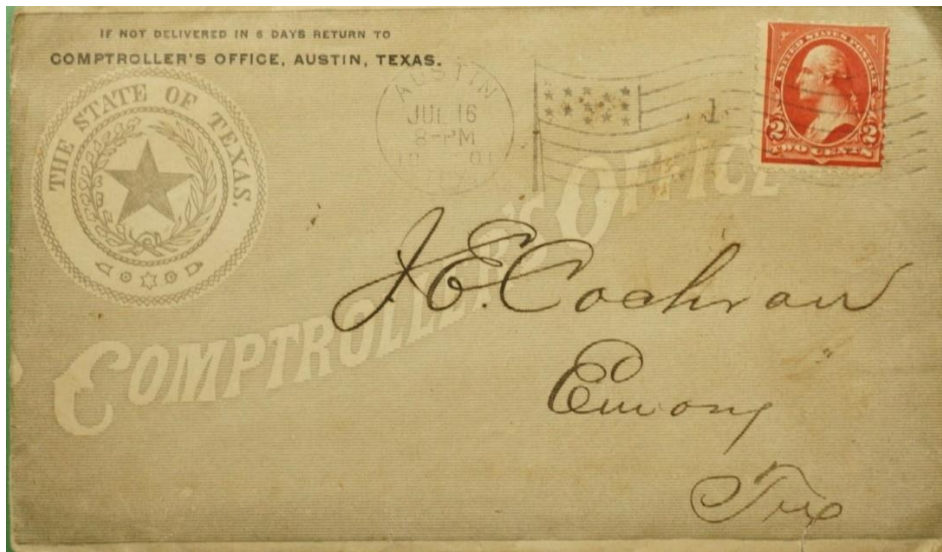 IF NOT DELIVERED IN 6 DAYS RETURN TO
COMPTROLLER'S OFFICE, AUSTIN, TEXAS.
THE STATE OF TEXAS.
AUSTIN
JUL 16
8-PM
1901
1
UNITED STATES POSTAGE
2 2
TWO CENTS
COMPTROLLER'S OFFICE
J.E. Cochran
Tex